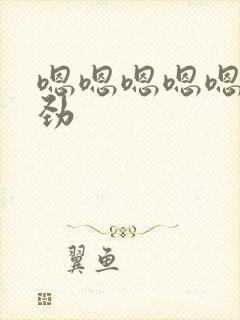 嗯嗯嗯嗯嗯
劲
翼鱼